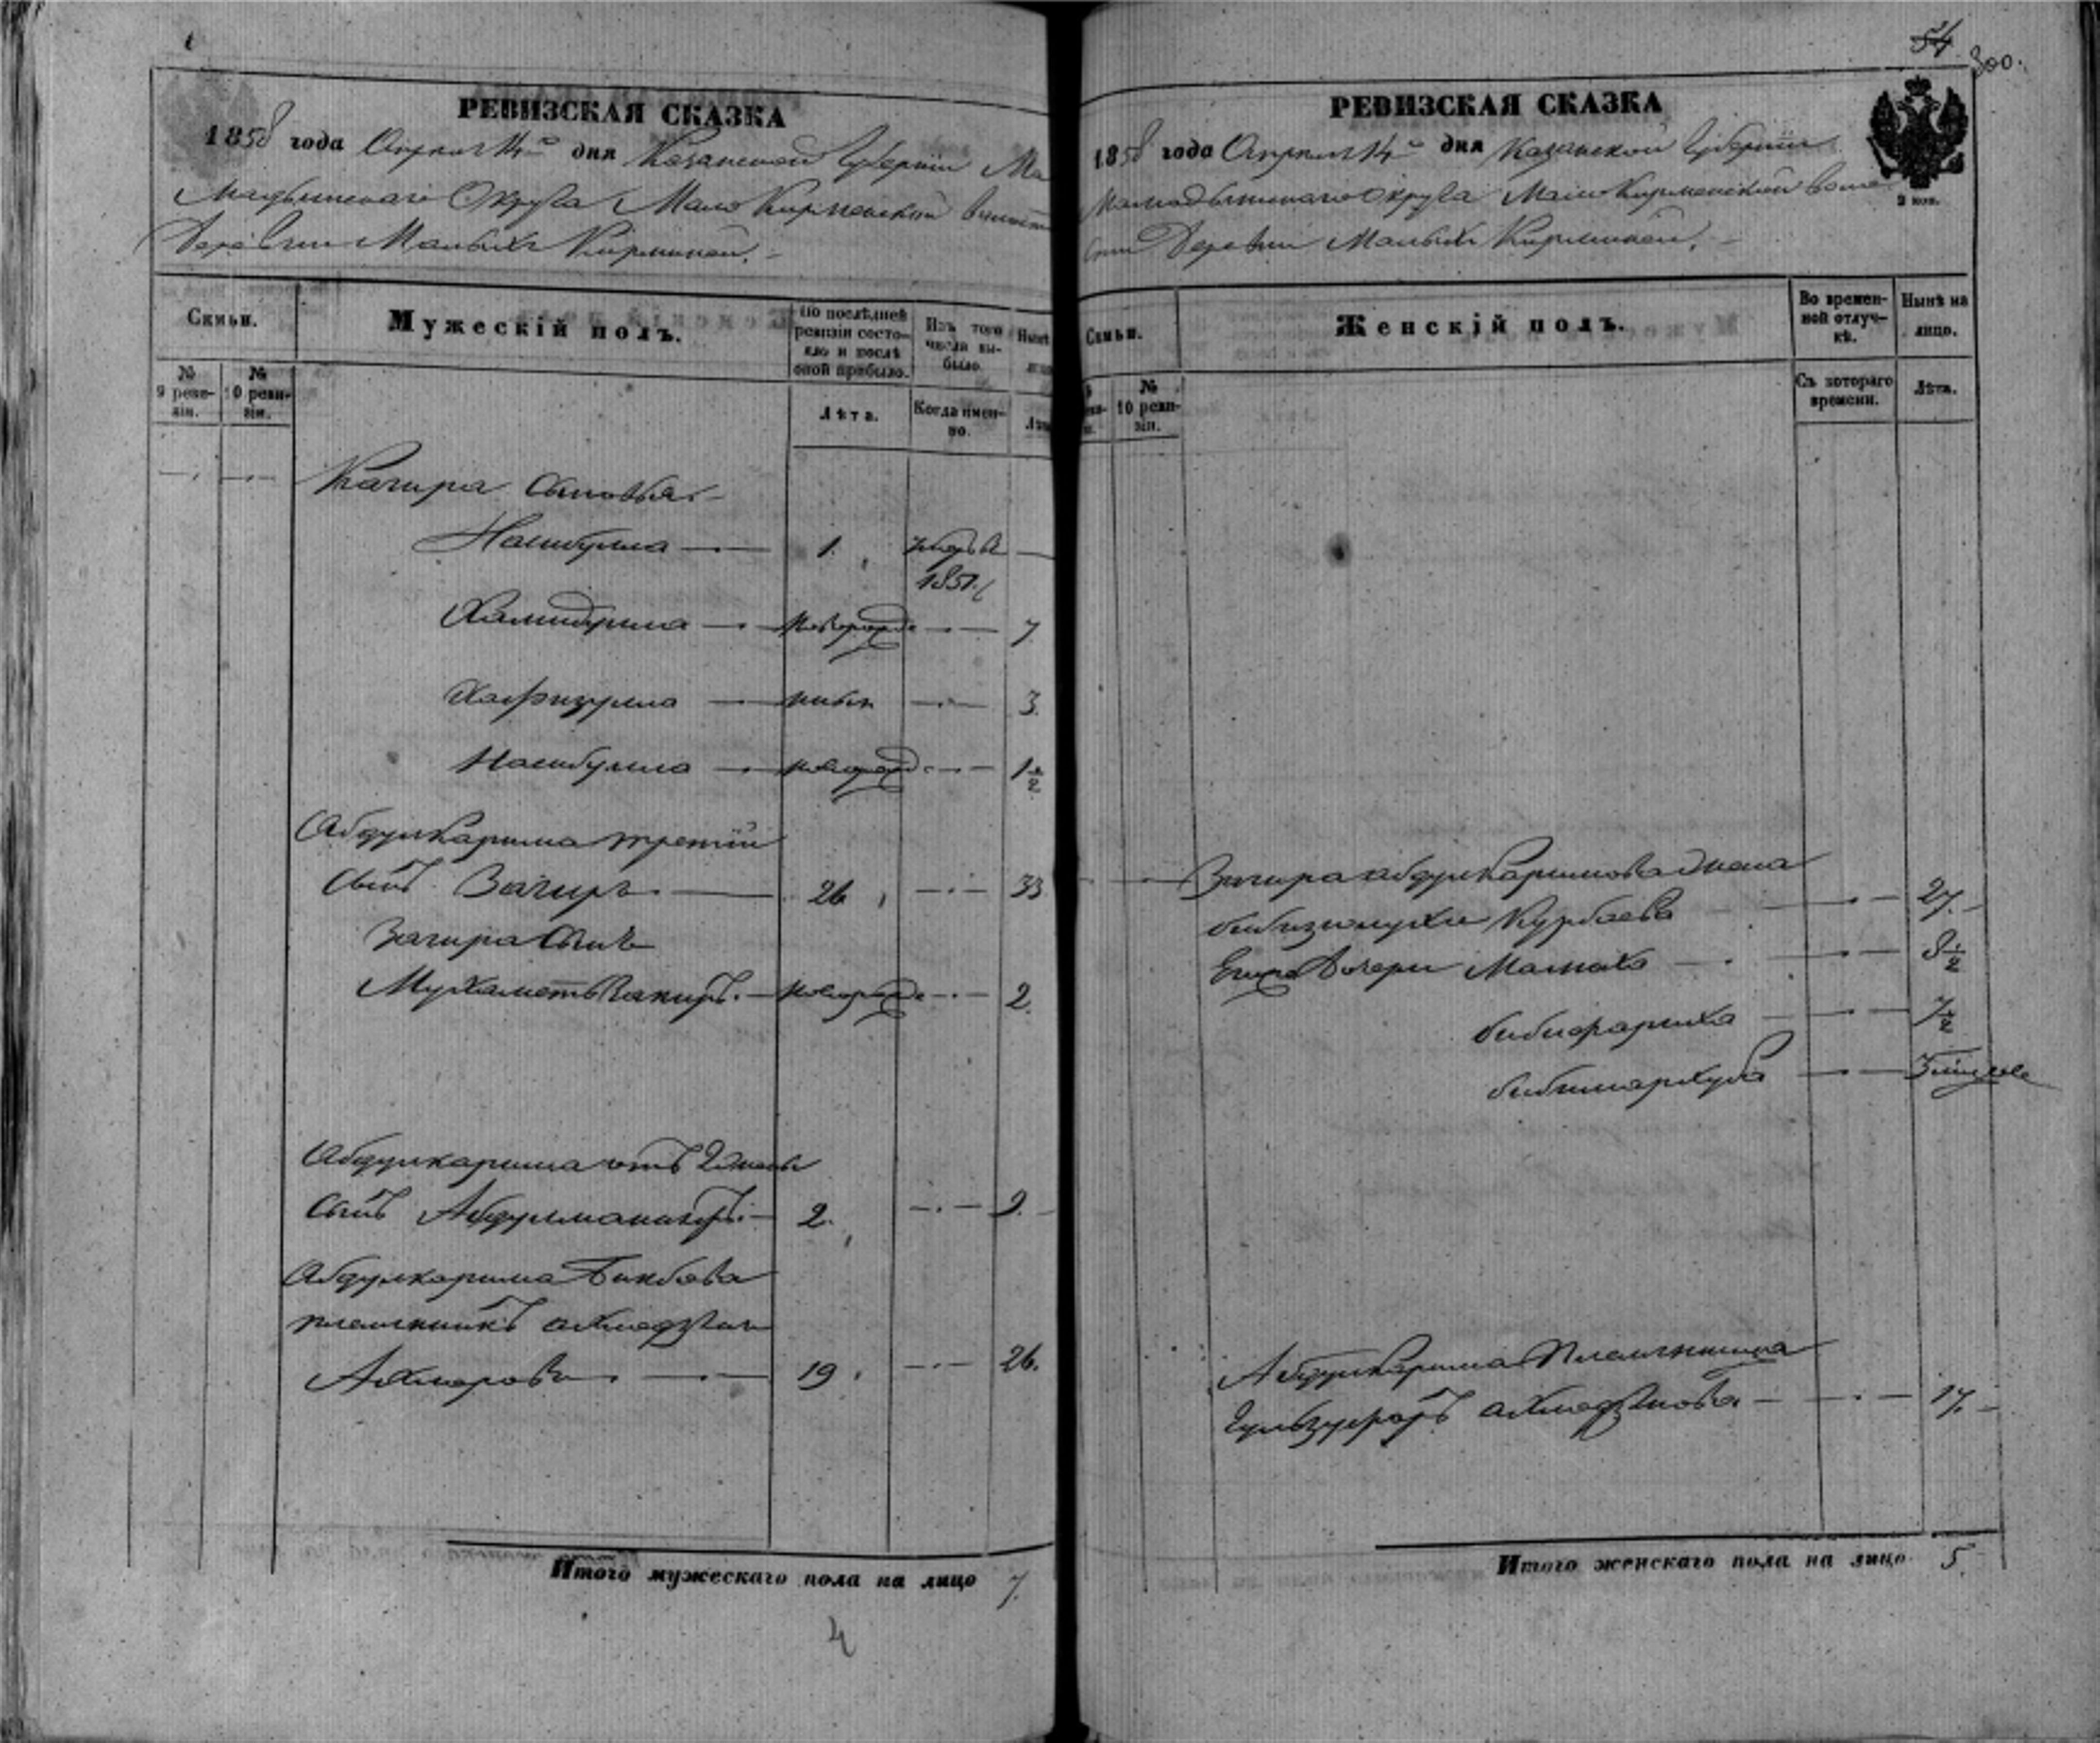 РЕВИЗСКАЯ СКАЗКА
1858 года Апреля 14го дня Казанской Губернии Ма
мадышскаго Округа Мало Кирменской волост
Деревни Малыхъ Кирменей.
Семьи.
Мужескій полъ.
По послѣдней ревизіи состояло и послѣ оной прибыло.
Изъ того числа выбыло.
Нынѣ
№ 9 реви-зіи.
№ 10 реви-зіи.
Лѣта.
Когда имен-но.
Кагира сыновья
1. умеръ въ
1851.
новорожд 7
Хафизулла новъ 3.
Насибулла новорожд 1 1/2
Абдулкарима третій
сынъ Загиръ 26 33
Загира сынъ
Мухаметь Закиръ новорожд 2.
Абдулкарима отъ 2 жены
сынъ 2. 9.
Абдулкарима Бикбова
племянникъ
19. 26.
Итого мужескаго пола на лицо 7.
4
54
300.
РЕВИЗСКАЯ СКАЗКА
1858 года Апреля 14го дня Казанской Губерніи
Мамадышскаго Округа Мало Кирменской воло
сти Деревни Малыхъ Кирменей.
2 коп.
Семьи.
Женскій полъ.
Во времен-ной отлуч-кѣ.
Нынѣ на лицо.
№ 10 реви-зіи.
Съ котораго времени.
Лѣта.
Загира Абдулкаримова жена
Курбаева 27.
Его дочери 8 1/2
7 1/2
Абдулкарима племянница
17.
Итого женскаго пола на лицо 5.